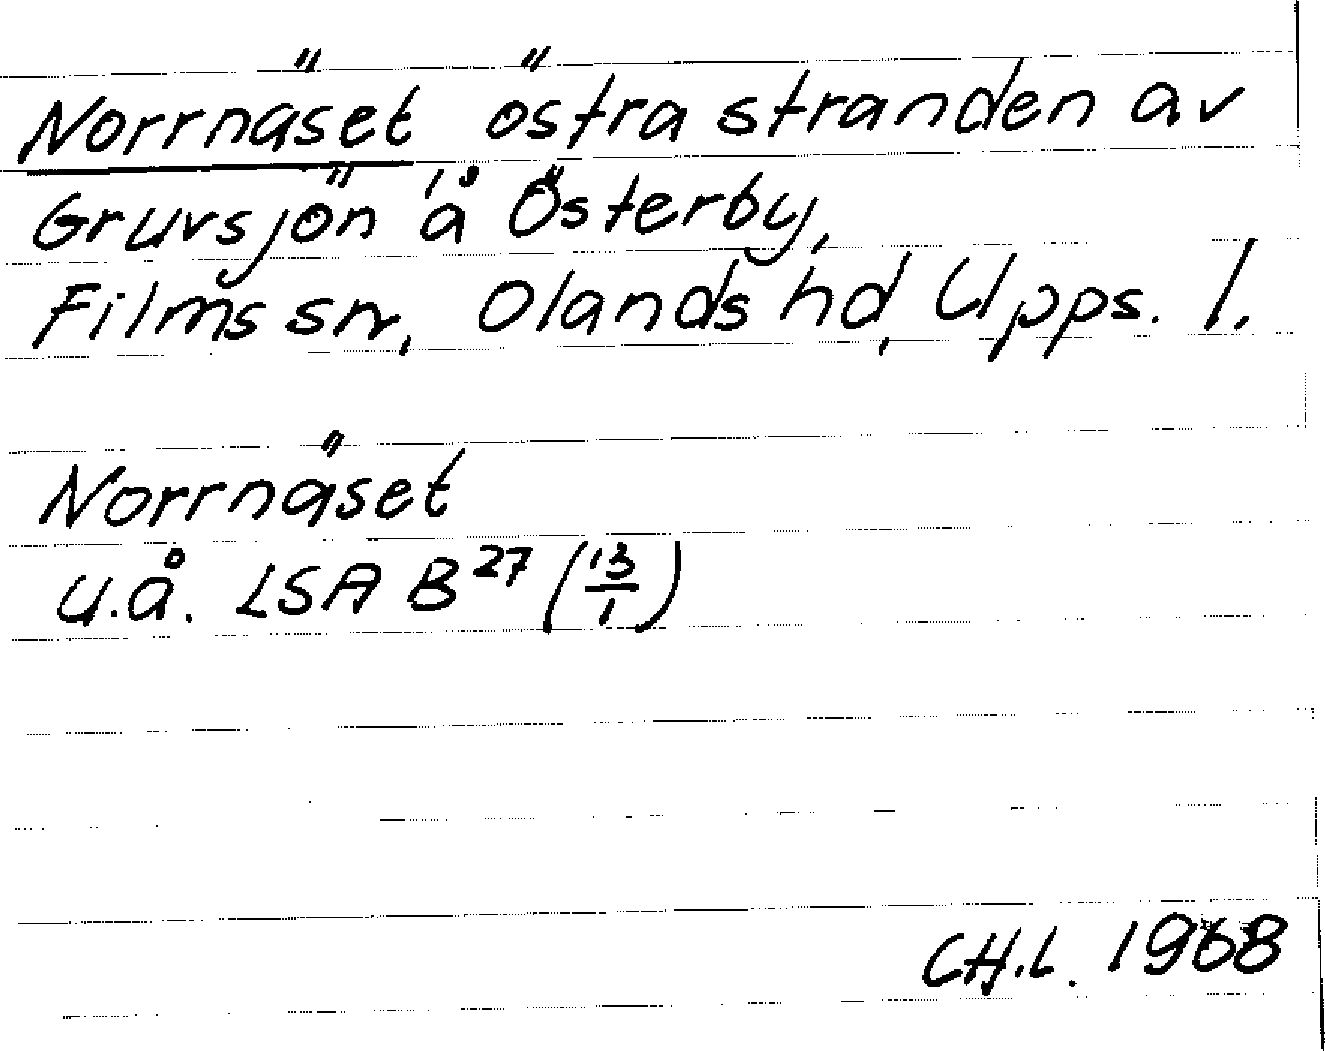 Norrnäset östra stranden av
Gruvsjön å Österby,
Films sn, Olands hd, Upps. l.
Norrnäset
u.å. LSA B 27 (13/1)
CH.L. 1968